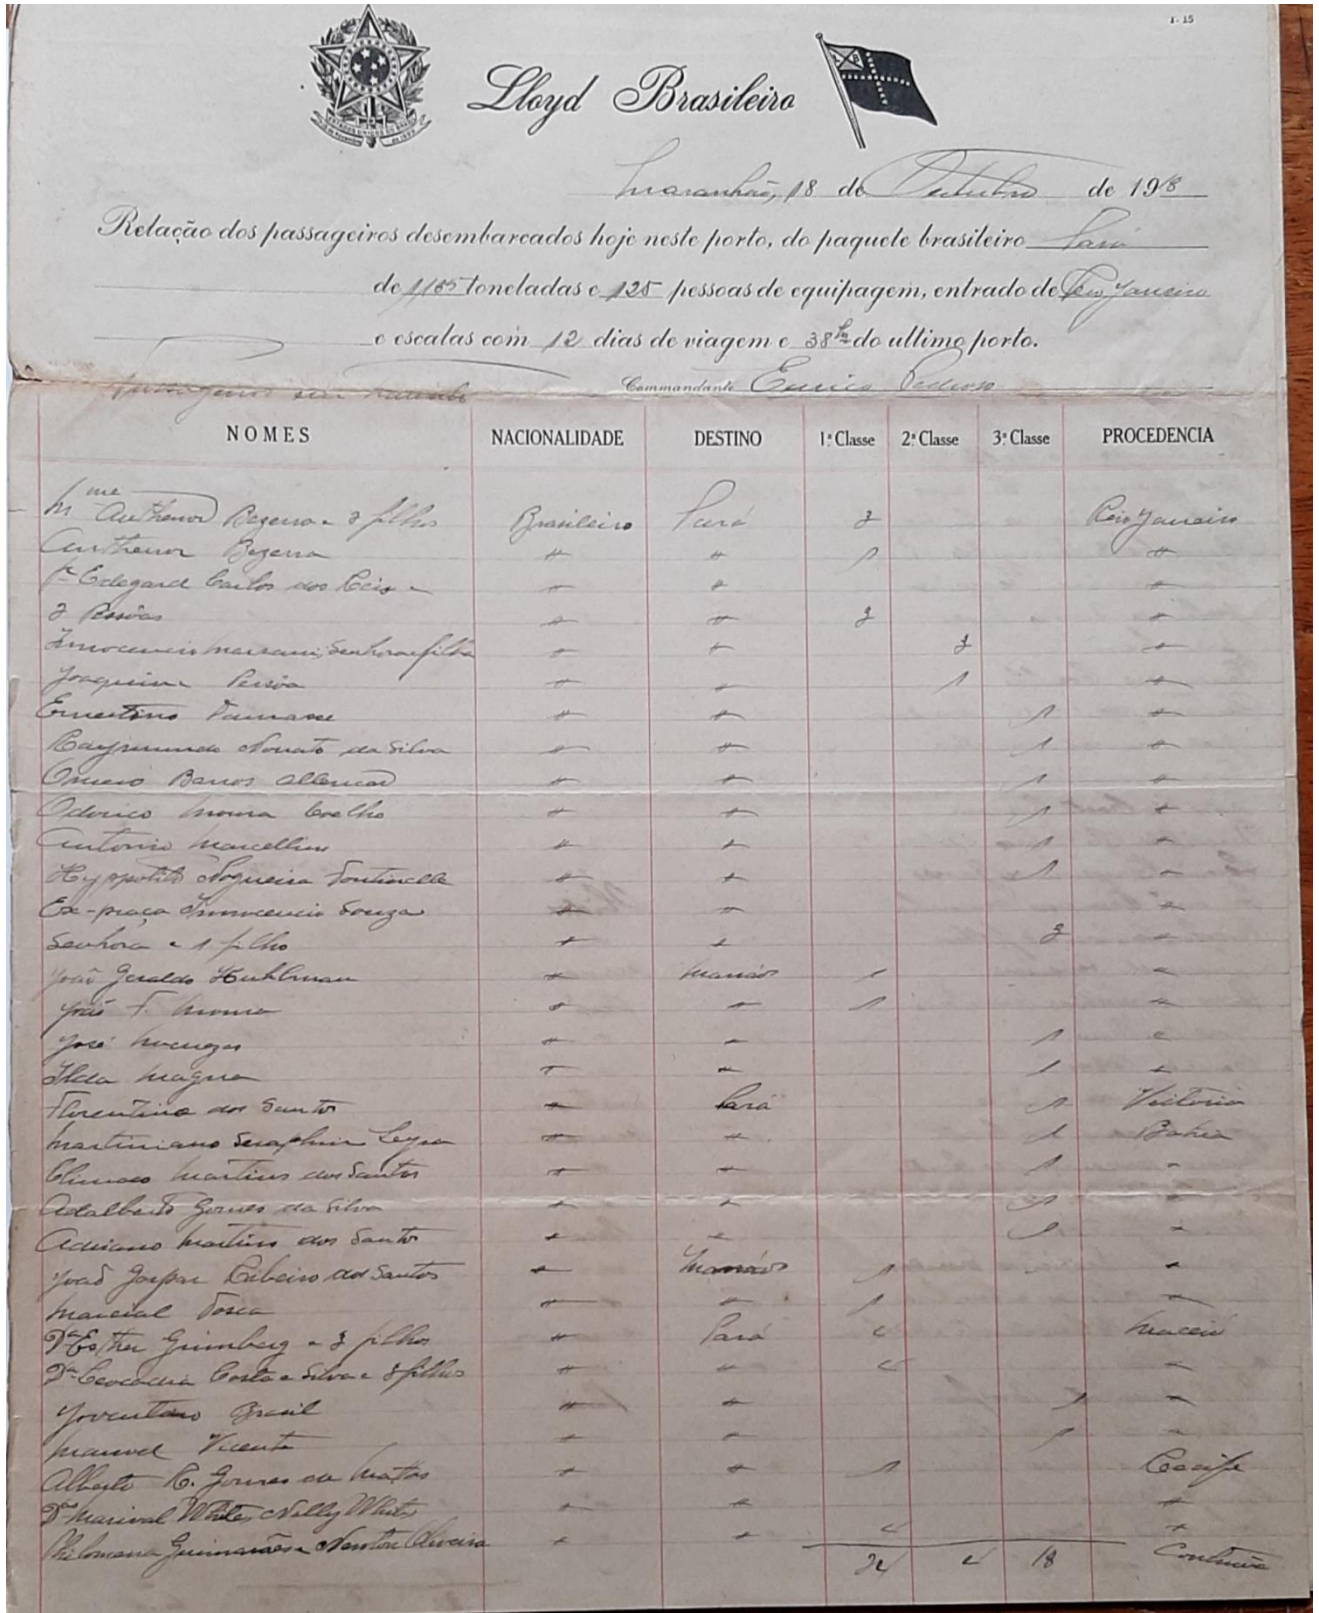 1-15
ESTADOS UNIDOS DO BRASIL
Lloyd Brasileiro
Maranhão, 18 de Outubro de 1918
Relação dos passageiros desembarcados hoje neste porto, do paquete brasileiro Pará
de 1185 toneladas e 125 pessoas de equipagem, entrado de Rio Janeiro
e escalas com 12 dias de viagem e 38 hs do ultimo porto.
Commandante Eurico Pedroso
NOMES NACIONALIDADE DESTINO 1ª Classe 2ª Classe 3ª Classe PROCEDENCIA
Mme Anthenor Bezerra e 2 filhos Brasileiro Pará 3 Rio Janeiro
Anthenor Bezerra " " 1 "
Edegard Carlos dos Reis e " " "
2 Pessôas " " 3 "
Innocencio Mariani, Senhora e filha " " 3 "
Joaquim Pessôa " " 1 "
Ernestino " " 1 "
Raymundo Nonato da Silva " " 1 "
Barros Allencar " " 1 "
Odorico Moura Coelho " " 1 "
Antonio Marcellino " " 1 "
Hyppolito Nogueira Fontinelle " " 1 "
Ex-praça Innocencio Souza " " "
Senhora e 1 filho " " 3 "
João Geraldo Kuhlman " Manáos 1 "
João F. Moura " " 1 "
José Menezes " " 1 "
Ilda Magna " " 1 "
Florentino dos Santos " Pará 1 Victoria
Martiniano Seraphim Leyra " " 1 Bahia
Climaco Martins dos Santos " " 1 "
Adalberto Gomes da Silva " " 1 "
Adriano Martins dos Santos " " 1 "
João Gaspar Ribeiro dos Santos " Manáos 1 "
Marcial " " 1 "
Dª Esther Grimberg e 3 filhos " Pará 4 Maceió
Dª Leocadia Costa e Silva e 3 filhos " " 4 "
Joventino Brasil " " 1 "
Manoel Vicente " " 1 "
Alberto R. Gomes de Mattos " " 1 Recife
White, Nelly White " " "
Philomena Guimarães e Newton Oliveira " " 4 "
24 4 18 Continúa